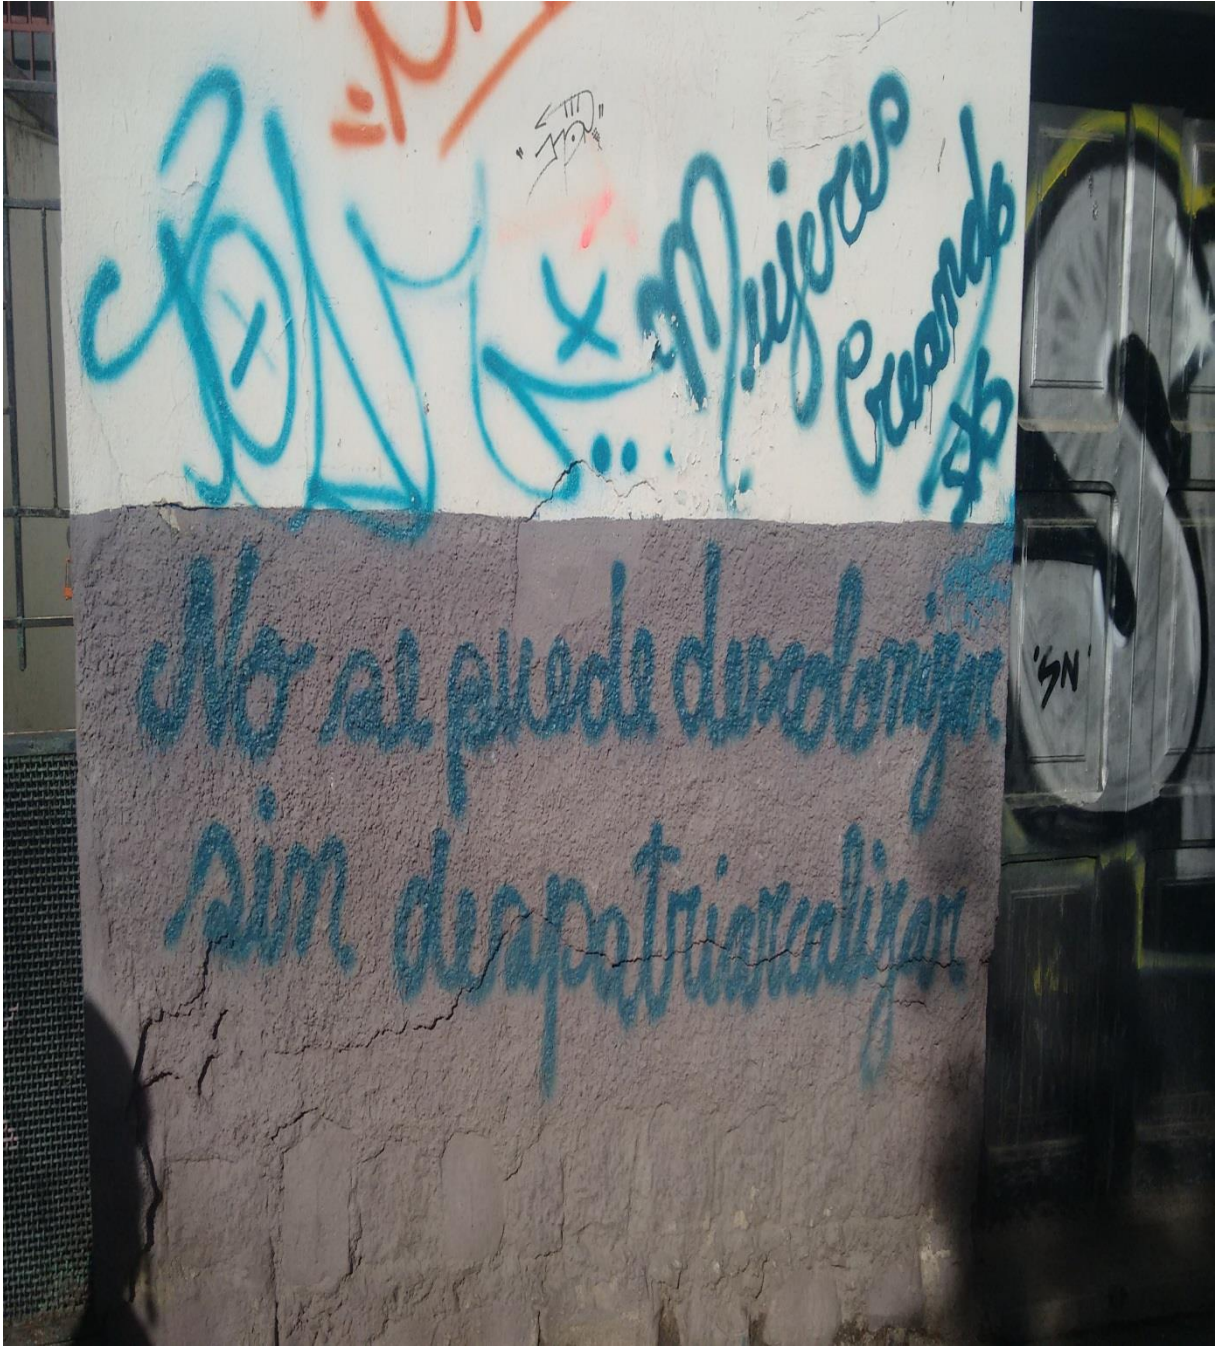 Mujeres
Creando
No se puede descolonizar
sin despatriarcalizar
"SN"